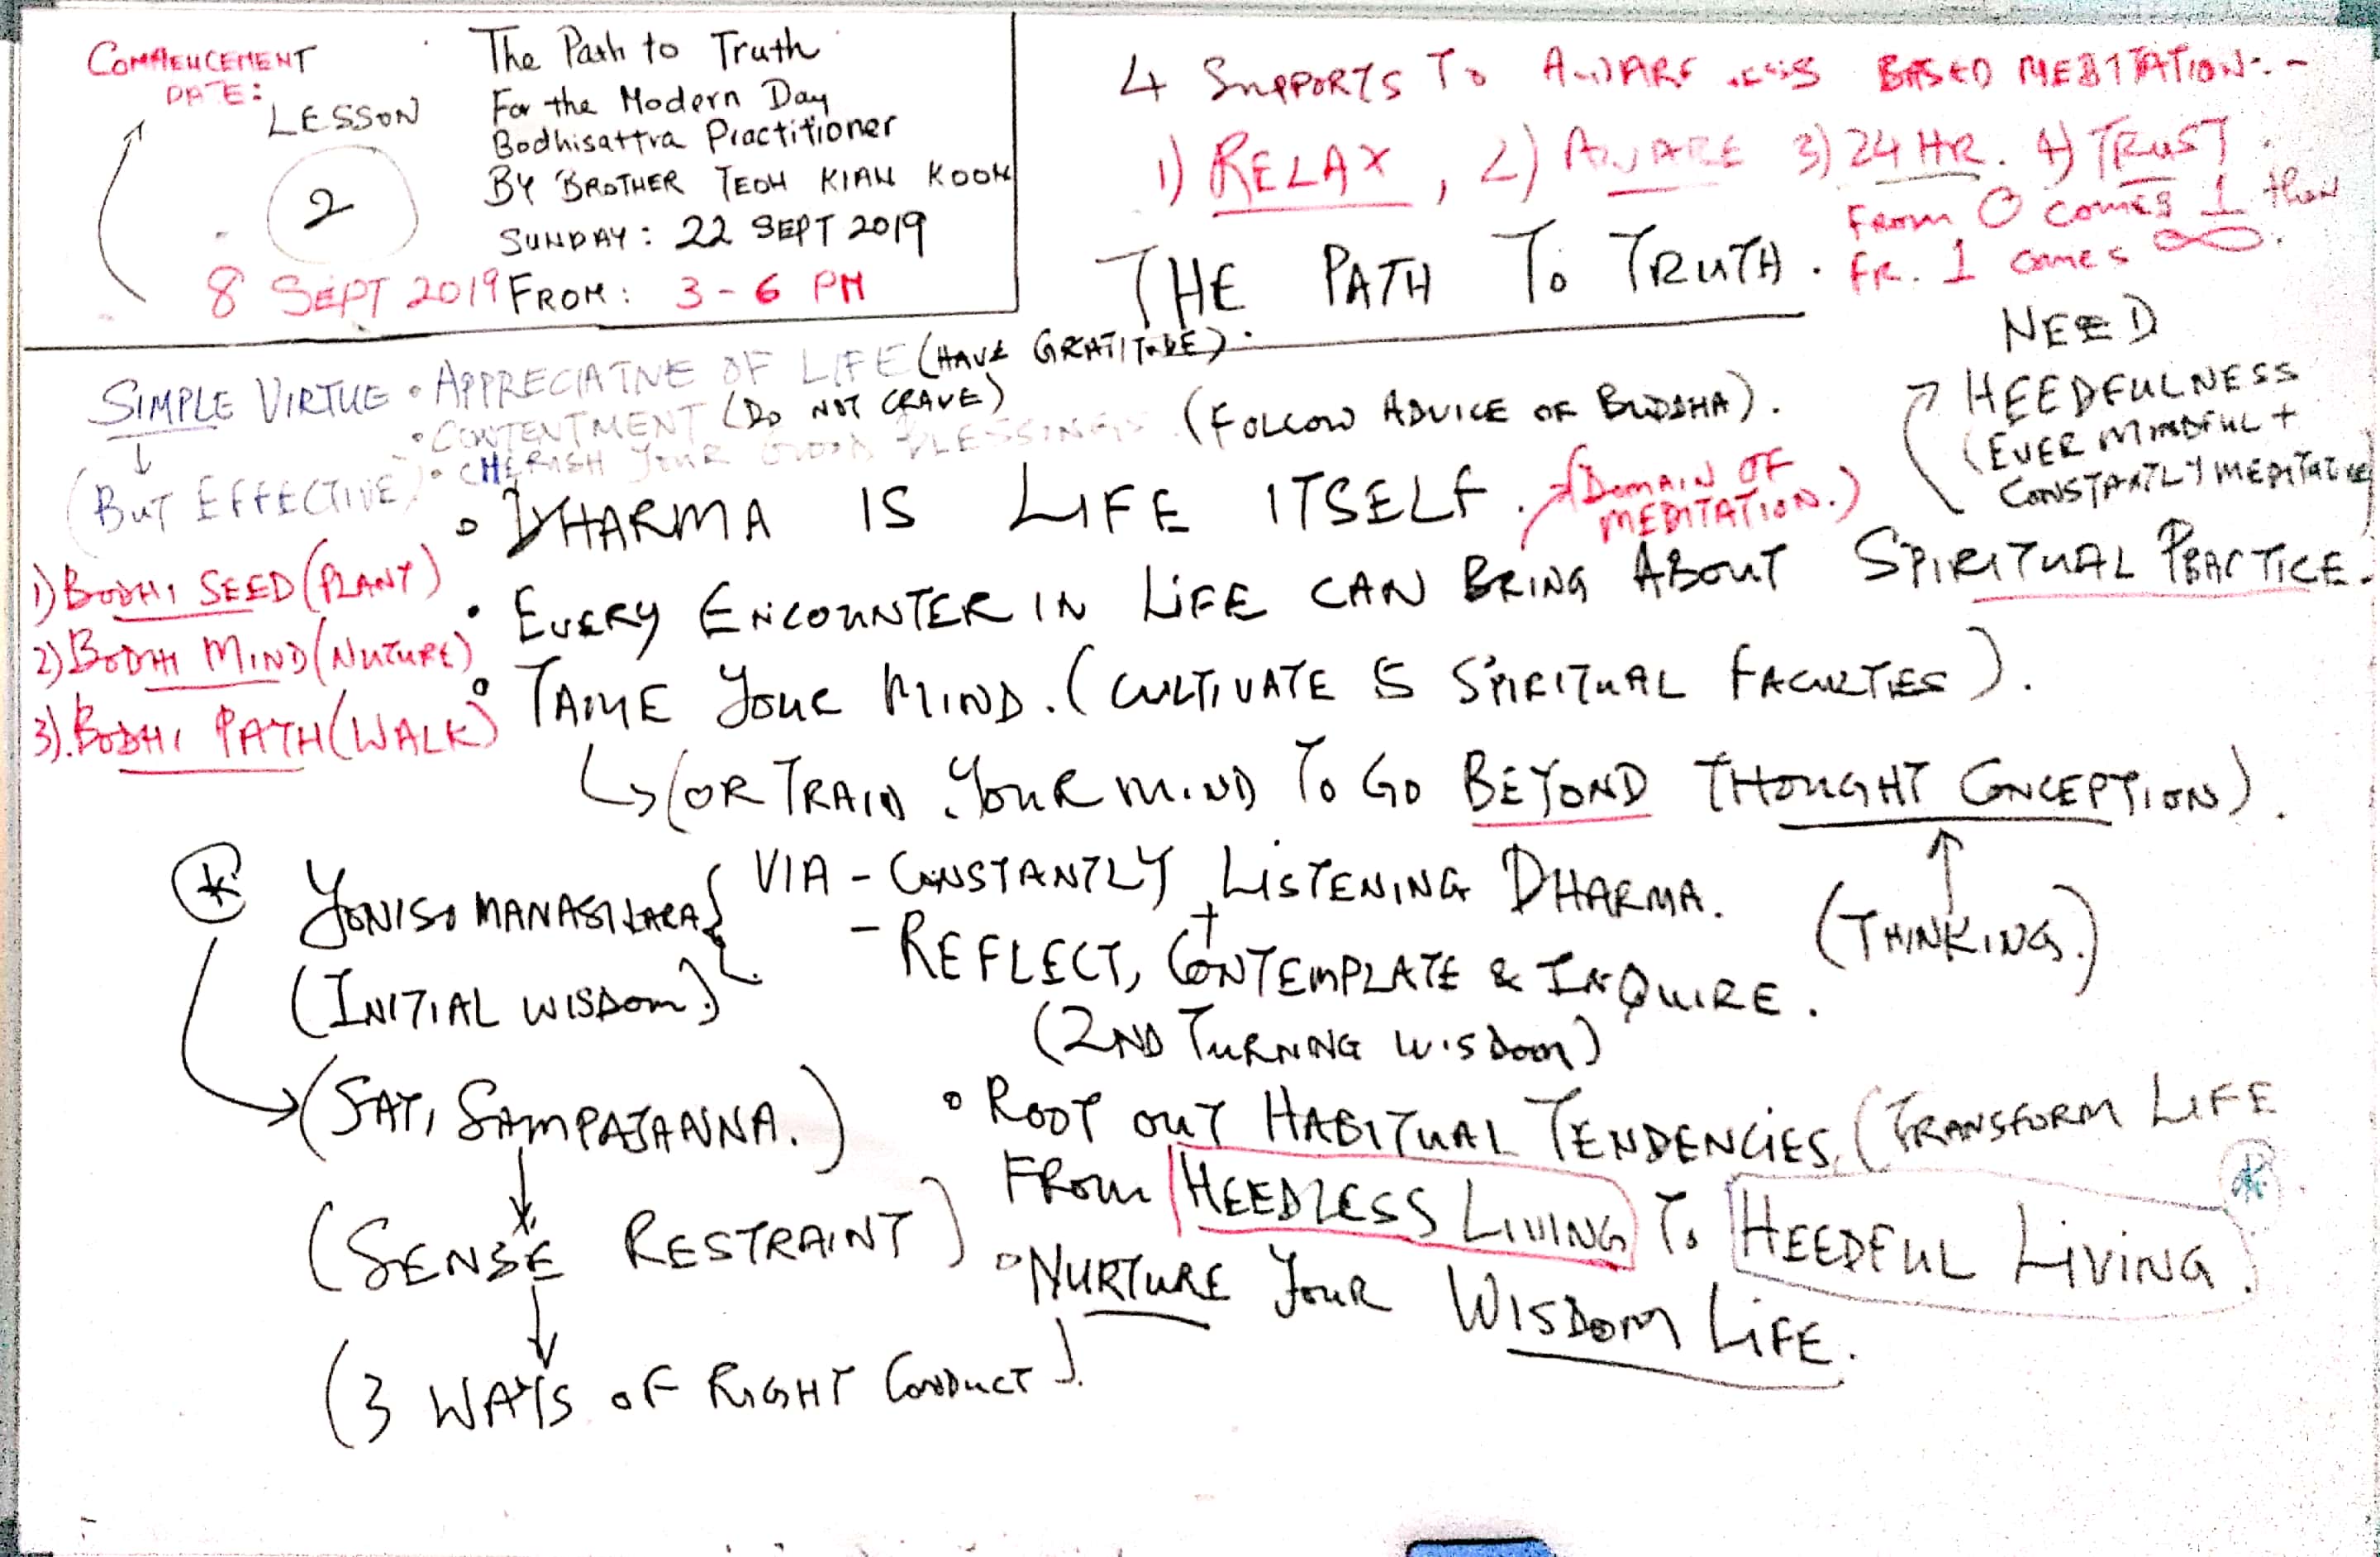 COMMENCEMENT
DATE:
LESSON
2
8 SEPT 2019
The Path to Truth
For the Modern Day
Bodhisattva Practitioner
BY BROTHER TEOH KIAN KOON
SUNDAY: 22 SEPT 2019
FROM: 3-6 PM
4 SUPPORTS TO AWARENESS BASED MEDITATION:-
1) RELAX, 2) AWARE 3) 24 HR. 4) TRUST.
FROM 0 COMES 1 then
FR. 1 comes ∞.
THE PATH TO TRUTH.
NEED
HEEDFULNESS
(EVER MINDFUL +
CONSTANTLY MEDITATIVE)
SIMPLE VIRTUE • APPRECIATIVE OF LIFE (HAVE GRATITUDE).
• CONTENTMENT (DO NOT CRAVE)
(BUT EFFECTIVE) • CHERISH YOUR GOOD BLESSINGS. (FOLLOW ADVICE OF BUDDHA).
• DHARMA IS LIFE ITSELF. (DOMAIN OF
MEDITATION.)
1) BODHI SEED (PLANT)
2) BODHI MIND (NUTURE)
3). BODHI PATH (WALK)
• EVERY ENCOUNTER IN LIFE CAN BRING ABOUT SPIRITUAL PRACTICE.
• TAME YOUR MIND. (CULTIVATE 5 SPIRITUAL FACULTIES).
↳ (OR TRAIN YOUR MIND TO GO BEYOND THOUGHT CONCEPTION).
(THINKING.)
* YONISO MANASIKARA { VIA - CONSTANTLY LISTENING DHARMA.
+
(INITIAL WISDOM.) - REFLECT, CONTEMPLATE & INQUIRE.
(2ND TURNING WISDOM)
→ (SATI SAMPAJANNA.)
↓
(SENSE RESTRAINT)
↓
(3 WAYS OF RIGHT CONDUCT).
• ROOT OUT HABITUAL TENDENCIES. (TRANSFORM LIFE
FROM HEEDLESS LIVING TO HEEDFUL LIVING.) *
• NURTURE YOUR WISDOM LIFE.